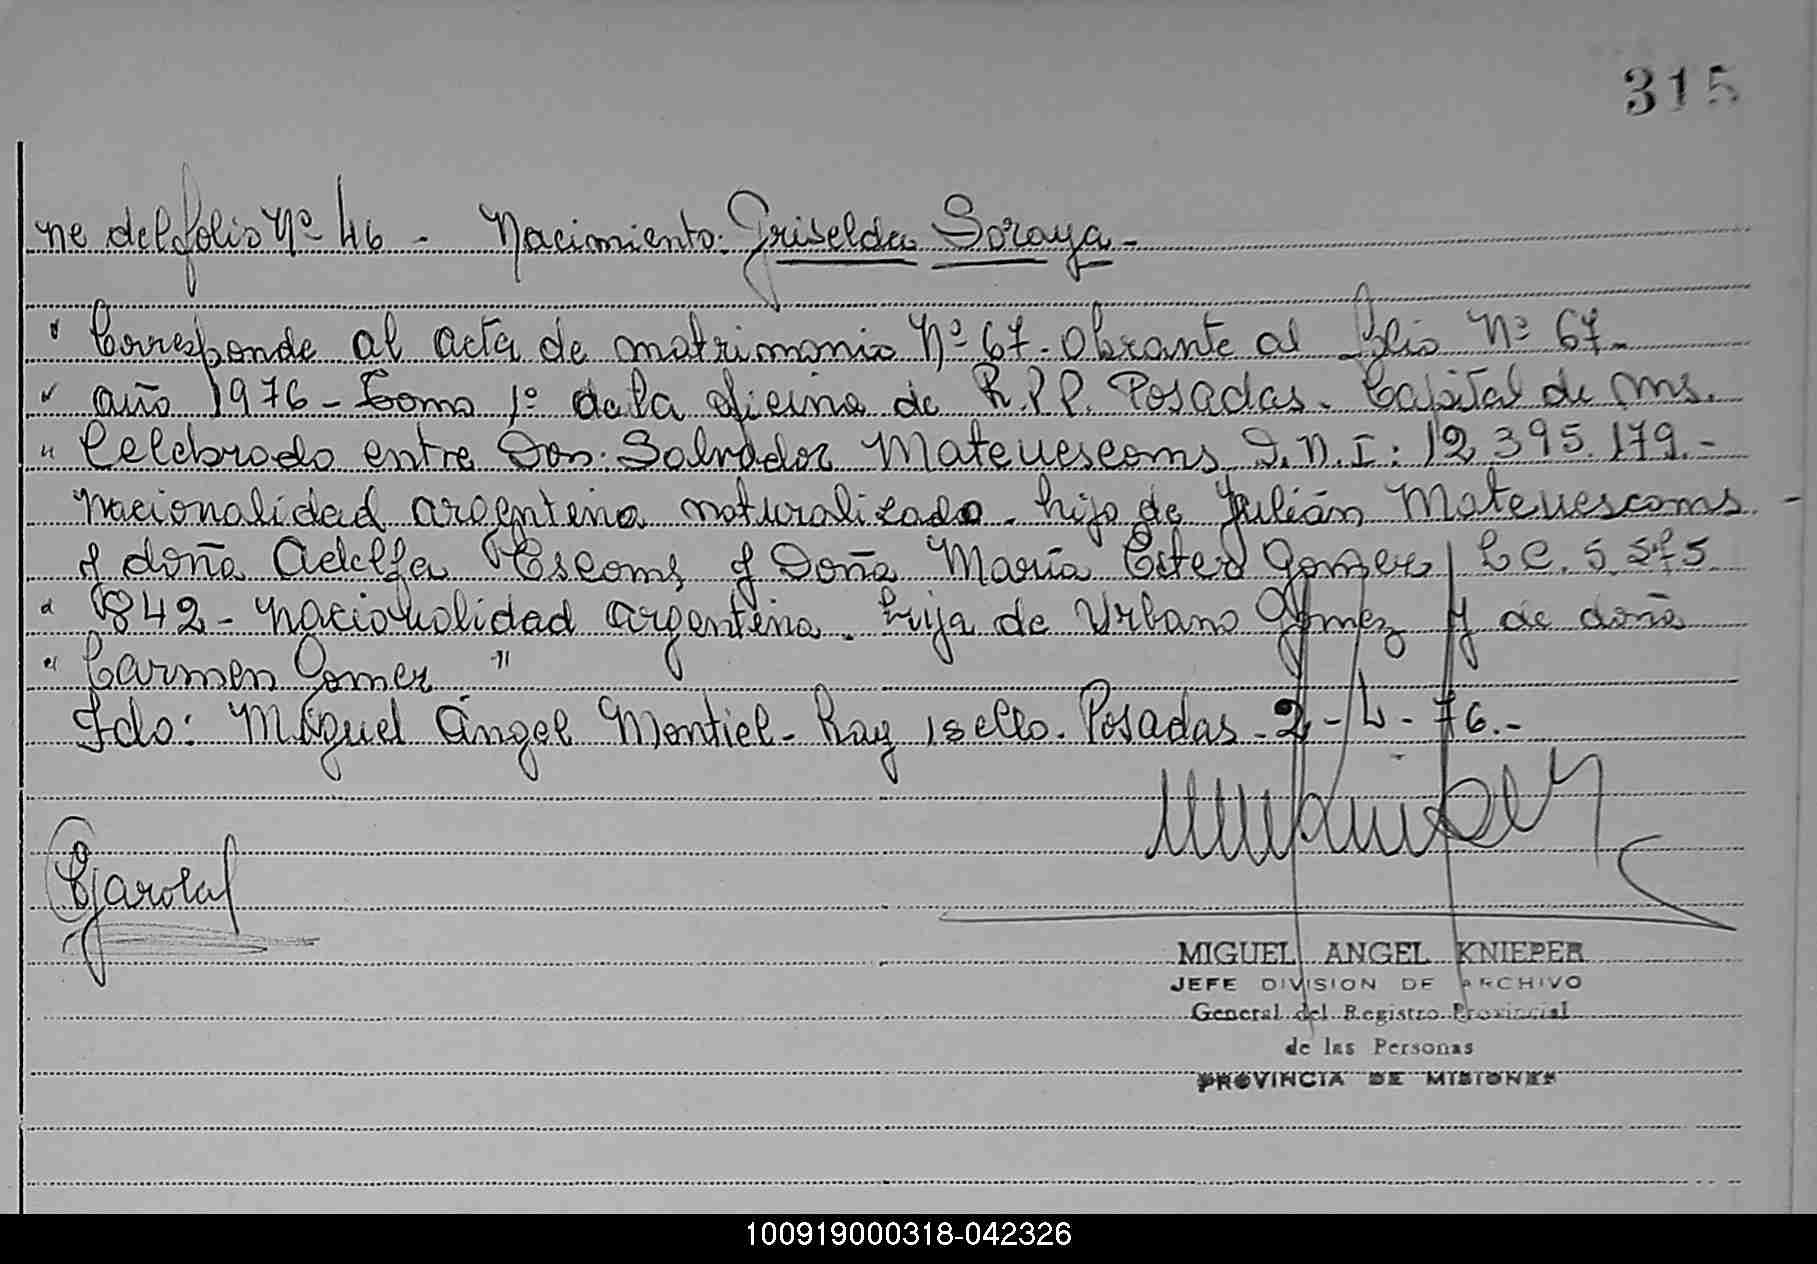 315
ne del folio Nº 46 - Nacimiento: Griselda Soraya -
" Corresponde al acta de matrimonio Nº 67. Obrante al folio Nº 67 -
" año 1976 - Tomo 1º de la oficina de R.P.P. Posadas. Capital de Ms.
" Celebrado entre Don: Salvador Mateuescoms D.N.I: 12 395.179. -
nacionalidad argentina naturalizado. hijo de Julián Mateuescoms -
y doña Adelfa Escoms y Doña María Ester Gomez L C. 5.575
" 842 - nacionalidad argentina. hija de Urbano Gomez y de doña
" Carmen Gomez "
Fdo: Miguel Ángel Montiel - Hay 1 sello. Posadas - 2 - 4 - 76. -
MIGUEL ANGEL KNIEPER
JEFE DIVISION DE ARCHIVO
General del Registro Provincial
de las Personas
PROVINCIA DE MISIONES
100919000318-042326